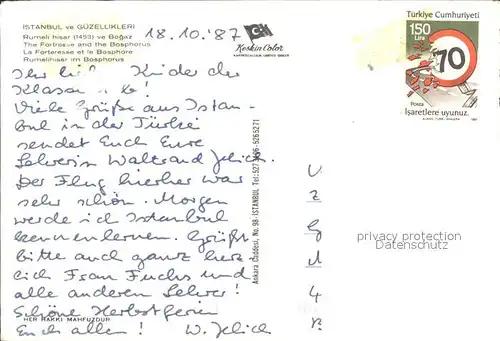 İSTANBUL ve GÜZELLİKLERİ
Rumeli hisar (1453) ve Boğaz
The Fortresse and the Bosphorus
La Forteresse et le Bosphore
Rumelihisar im Bosphorus
18.10.'87
Keskin Color
Türkiye Cumhuriyeti
150
Lira
70
Posta
İşaretlere uyunuz.
1987
Ihr lieben Kinder der
Klasse 6!
Viele Grüße aus Istan-
bul in der Türkei
sendet Euch Eure
Lehrerin Waltraud Jelich.
Der Flug hierher war
sehr schön. Morgen
werde ich Istanbul
kennenlernen. Grüßt
bitte auch ganz herz-
lich Frau Fuchs und
alle anderen Lehrer!
Schöne Herbstferien
Euch allen! W. Jelich
HER HAKKI MAHFUZDUR
Ankara Caddesi, No. 98 - İSTANBUL Tel:
privacy protection
Datenschutz